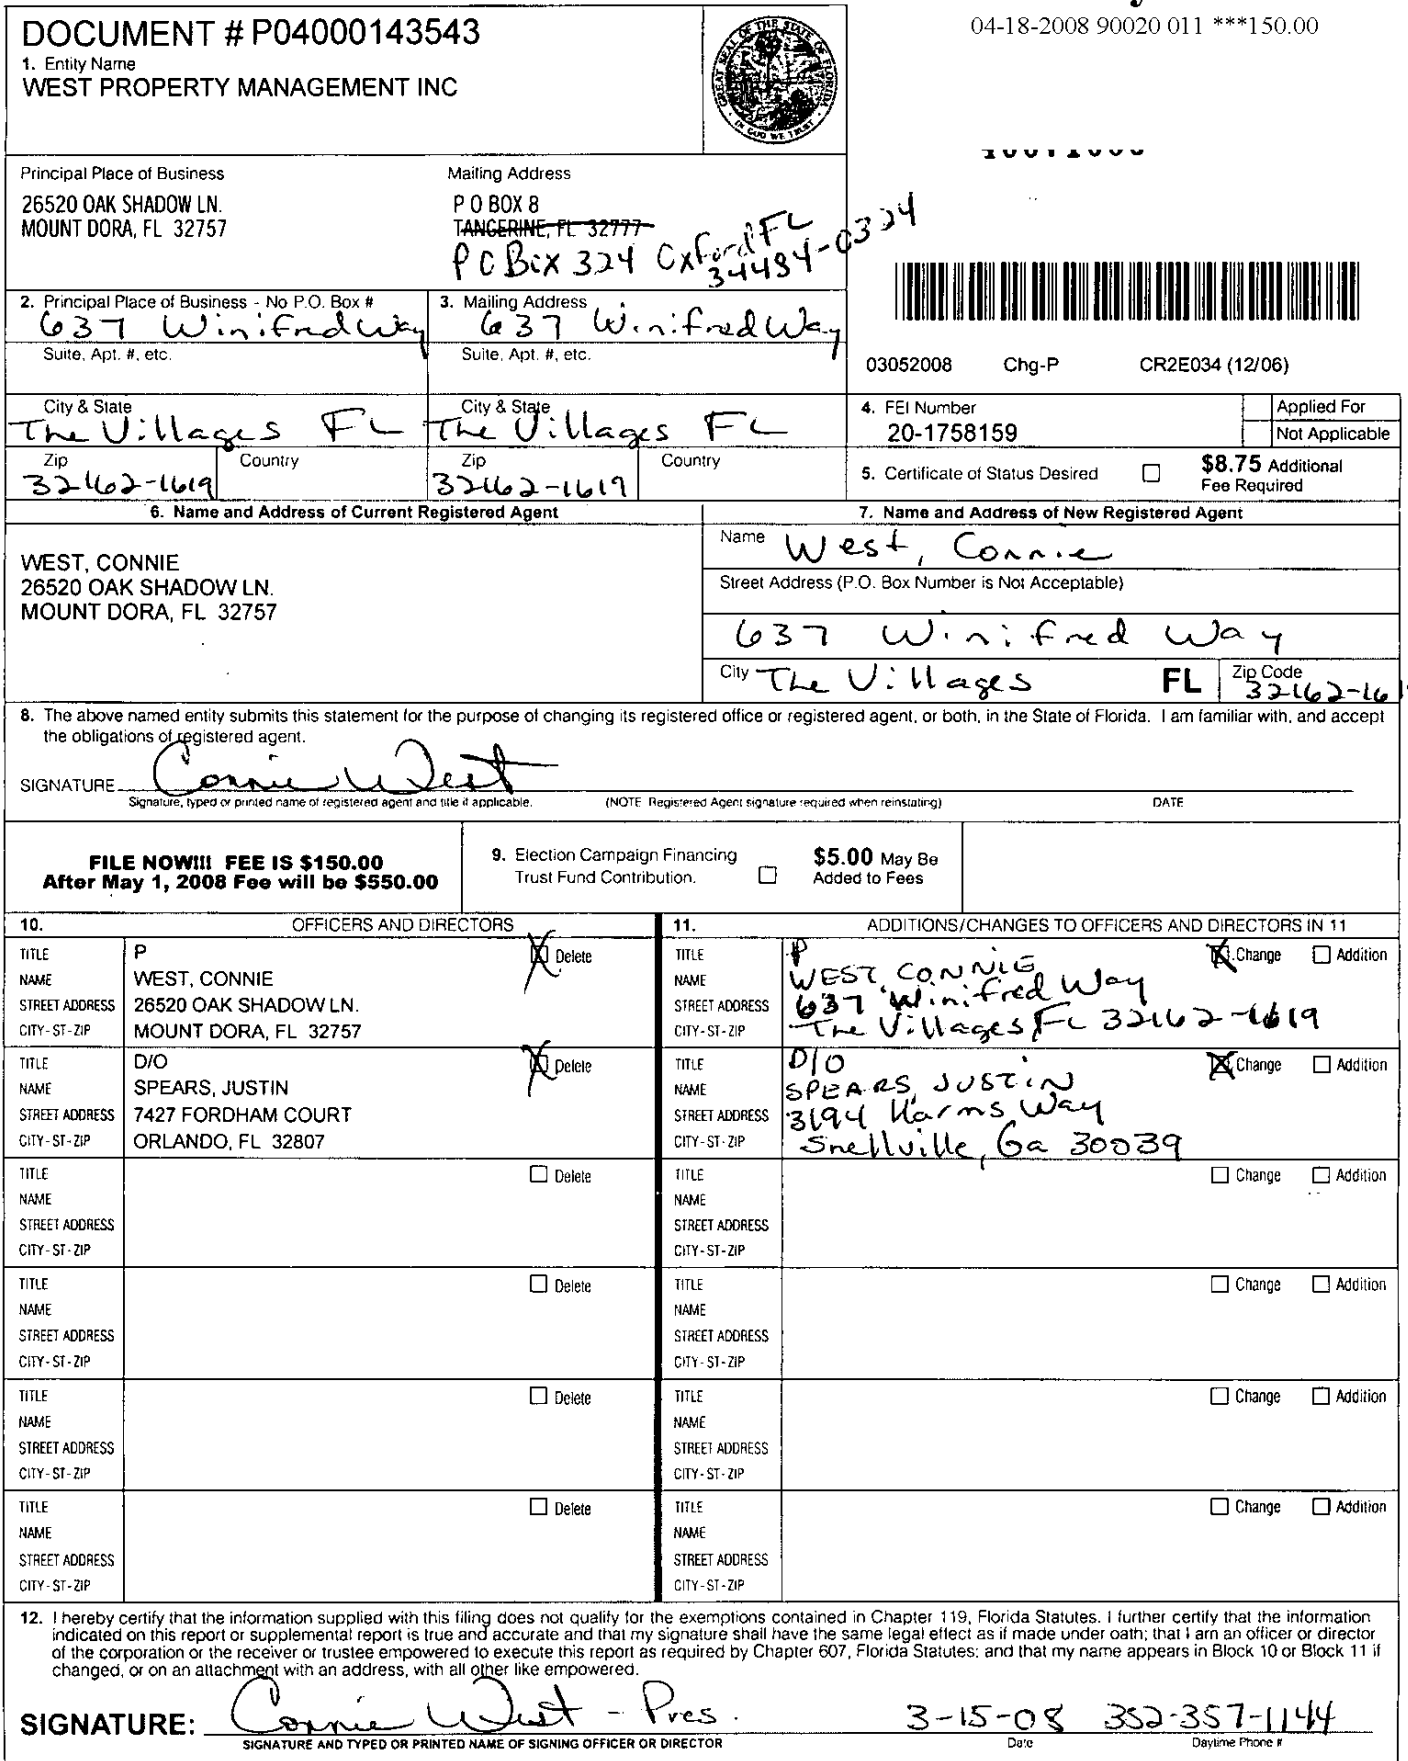 04-18-2008 90020 011 ***150.00
DOCUMENT # P04000143543
1. Entity Name
WEST PROPERTY MANAGEMENT INC
GREAT SEAL OF THE STATE OF FLORIDA
IN GOD WE TRUST
Principal Place of Business
26520 OAK SHADOW LN.
MOUNT DORA, FL 32757
Mailing Address
P O BOX 8
TANGERINE, FL 32777
P O Box 324 Oxford FL
34484-0324
2. Principal Place of Business - No P.O. Box #
637 Winifred Way
Suite, Apt. #, etc.
3. Mailing Address
637 Winifred Way
Suite, Apt. #, etc.
03052008 Chg-P CR2E034 (12/06)
City & State
The Villages FL
City & State
The Villages FL
Zip
32162-1619
Country
Zip
32162-1619
Country
4. FEI Number
20-1758159
Applied For
Not Applicable
5. Certificate of Status Desired
$8.75 Additional
Fee Required
6. Name and Address of Current Registered Agent
WEST, CONNIE
26520 OAK SHADOW LN.
MOUNT DORA, FL 32757
7. Name and Address of New Registered Agent
Name West, Connie
Street Address (P.O. Box Number is Not Acceptable)
637 Winifred Way
City The Villages FL Zip Code
32162-161
8. The above named entity submits this statement for the purpose of changing its registered office or registered agent, or both, in the State of Florida. I am familiar with, and accept
the obligations of registered agent.
SIGNATURE Connie West
Signature, typed or printed name of registered agent and title if applicable. (NOTE Registered Agent signature required when reinstating) DATE
FILE NOW!!! FEE IS $150.00
After May 1, 2008 Fee will be $550.00
9. Election Campaign Financing
Trust Fund Contribution.
$5.00 May Be
Added to Fees
10. OFFICERS AND DIRECTORS
TITLE P Delete
NAME WEST, CONNIE
STREET ADDRESS 26520 OAK SHADOW LN.
CITY-ST-ZIP MOUNT DORA, FL 32757
TITLE D/O Delete
NAME SPEARS, JUSTIN
STREET ADDRESS 7427 FORDHAM COURT
CITY-ST-ZIP ORLANDO, FL 32807
TITLE Delete
NAME
STREET ADDRESS
CITY-ST-ZIP
TITLE Delete
NAME
STREET ADDRESS
CITY-ST-ZIP
TITLE Delete
NAME
STREET ADDRESS
CITY-ST-ZIP
TITLE Delete
NAME
STREET ADDRESS
CITY-ST-ZIP
11. ADDITIONS/CHANGES TO OFFICERS AND DIRECTORS IN 11
TITLE P Change Addition
NAME WEST, CONNIE
STREET ADDRESS 637 Winifred Way
CITY-ST-ZIP The Villages FL 32162-1619
TITLE D/O Change Addition
NAME SPEARS, JUSTIN
STREET ADDRESS 3194 Harms Way
CITY-ST-ZIP Snellville, Ga 30039
TITLE Change Addition
NAME
STREET ADDRESS
CITY-ST-ZIP
TITLE Change Addition
NAME
STREET ADDRESS
CITY-ST-ZIP
TITLE Change Addition
NAME
STREET ADDRESS
CITY-ST-ZIP
TITLE Change Addition
NAME
STREET ADDRESS
CITY-ST-ZIP
12. I hereby certify that the information supplied with this filing does not qualify for the exemptions contained in Chapter 119, Florida Statutes. I further certify that the information
indicated on this report or supplemental report is true and accurate and that my signature shall have the same legal effect as if made under oath; that I am an officer or director
of the corporation or the receiver or trustee empowered to execute this report as required by Chapter 607, Florida Statutes; and that my name appears in Block 10 or Block 11 if
changed, or on an attachment with an address, with all other like empowered.
SIGNATURE: Connie West - Pres. 3-15-08 352-357-1144
SIGNATURE AND TYPED OR PRINTED NAME OF SIGNING OFFICER OR DIRECTOR Date Daytime Phone #